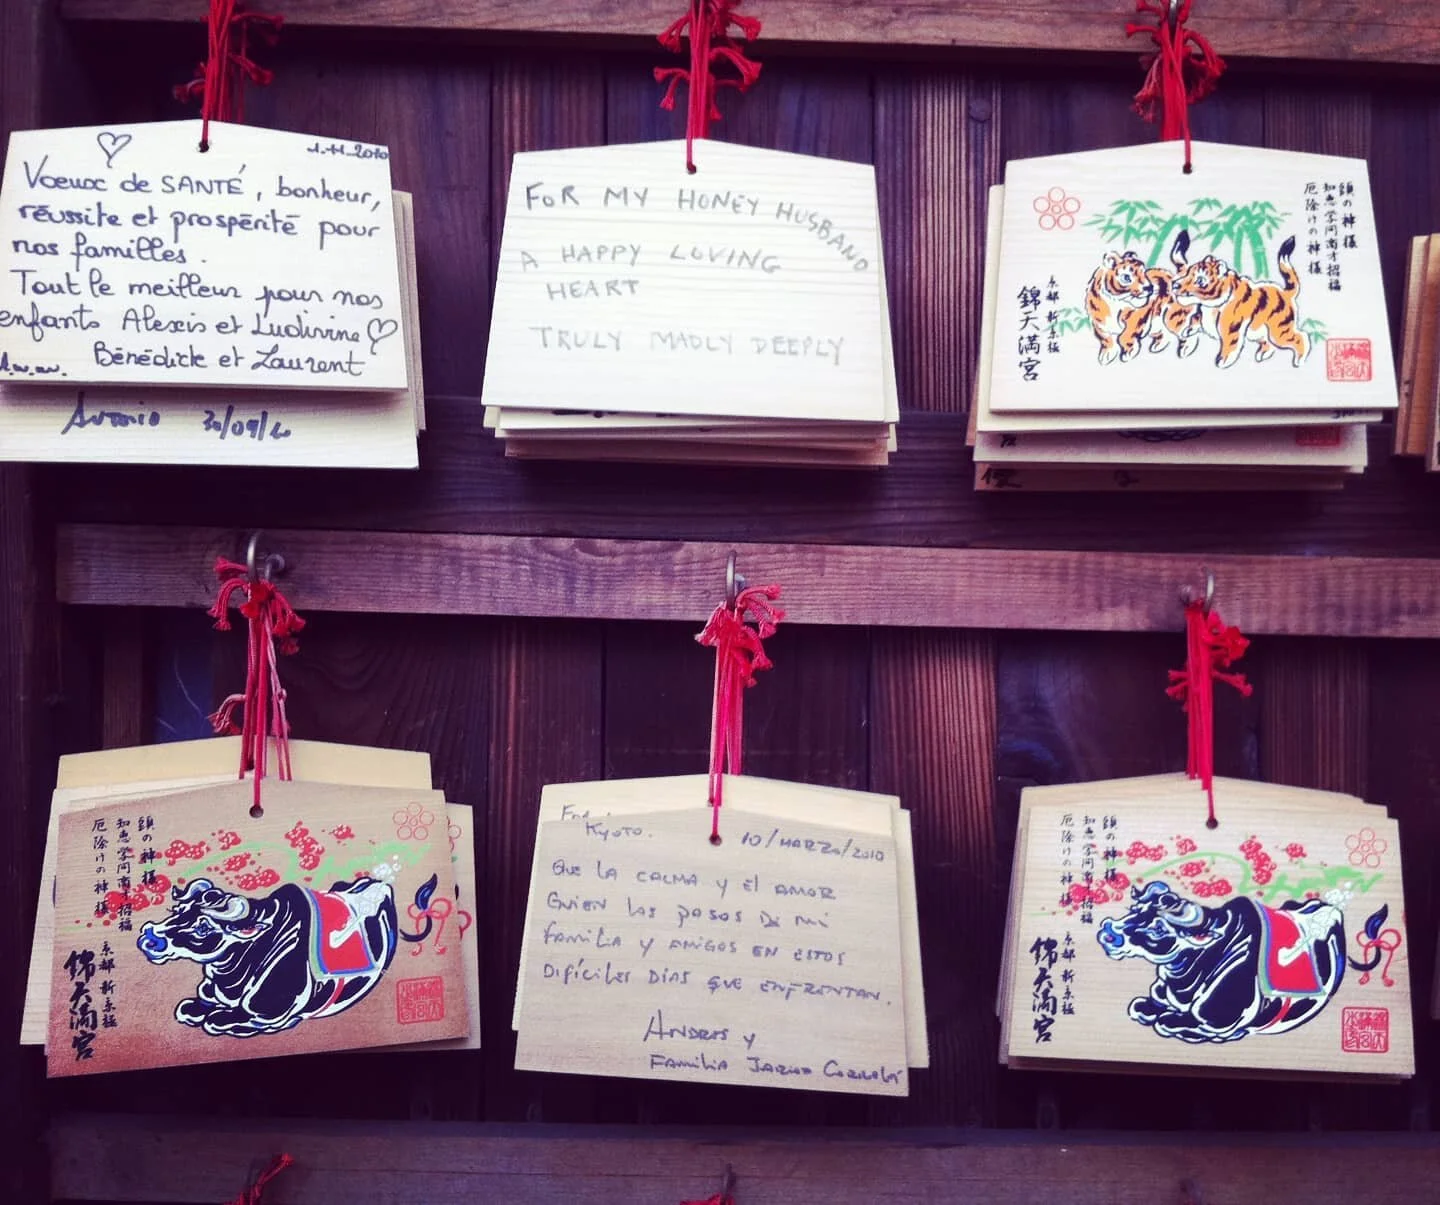 1.11.2010
Voeux de SANTÉ, bonheur,
réussite et prospérité pour
nos familles.
Tout le meilleur pour nos
enfants Alexis et Ludivine
Bénédicte et Laurent
30/09/10
FOR MY HONEY HUSBAND
A HAPPY LOVING
HEART
TRULY MADLY DEEPLY
鎮の神様
知恵学問商才招福
厄除けの神様
京都新京極
錦天満宮
鎮の神様
知恵学問商才招福
厄除けの神様
京都新京極
錦天満宮
KYOTO. 10/MARZO/2010
QUE LA CALMA Y EL AMOR
GUIEN LOS PASOS DE MI
FAMILIA Y AMIGOS EN ESTOS
DIFÍCILES DÍAS QUE ENFRENTAN.
ANDRES Y
FAMILIA
鎮の神様
知恵学問商才招福
厄除けの神様
京都新京極
錦天満宮